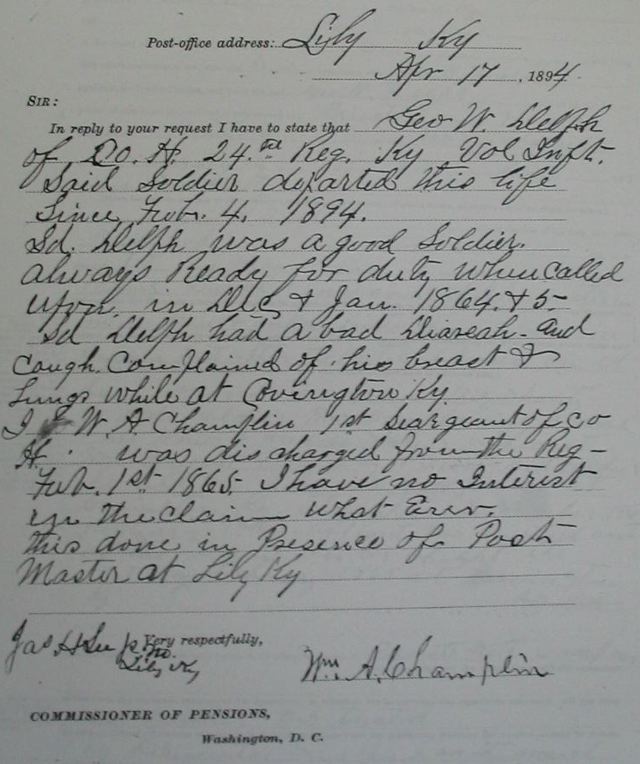 Post-office address: Lily Ky
Apr 17, 1894.
SIR:
In reply to your request I have to state that Geo W. Delph
of Co. H. 24th Reg. Ky Vol Inft.
Said Soldier departed this life
Since Feb. 4. 1894.
Sd. Delph was a good Soldier.
always Ready for duty when called
upon. in Dec & Jan. 1864. & 5-
Sd Delph had a bad Diareah- and
Cough. Complained of his breast &
Lungs while at Covington Ky.
I W. A Champlin 1st Seargeant of Co
H. was discharged from the Reg-
Feb. 1st 1865. I have no Interest
in the claim what Ever.
this done in Presence of Post
Master at Lily Ky
Very respectfully,
Jas H
Lily Ky
Wm. A. Champlin
COMMISSIONER OF PENSIONS,
Washington, D. C.